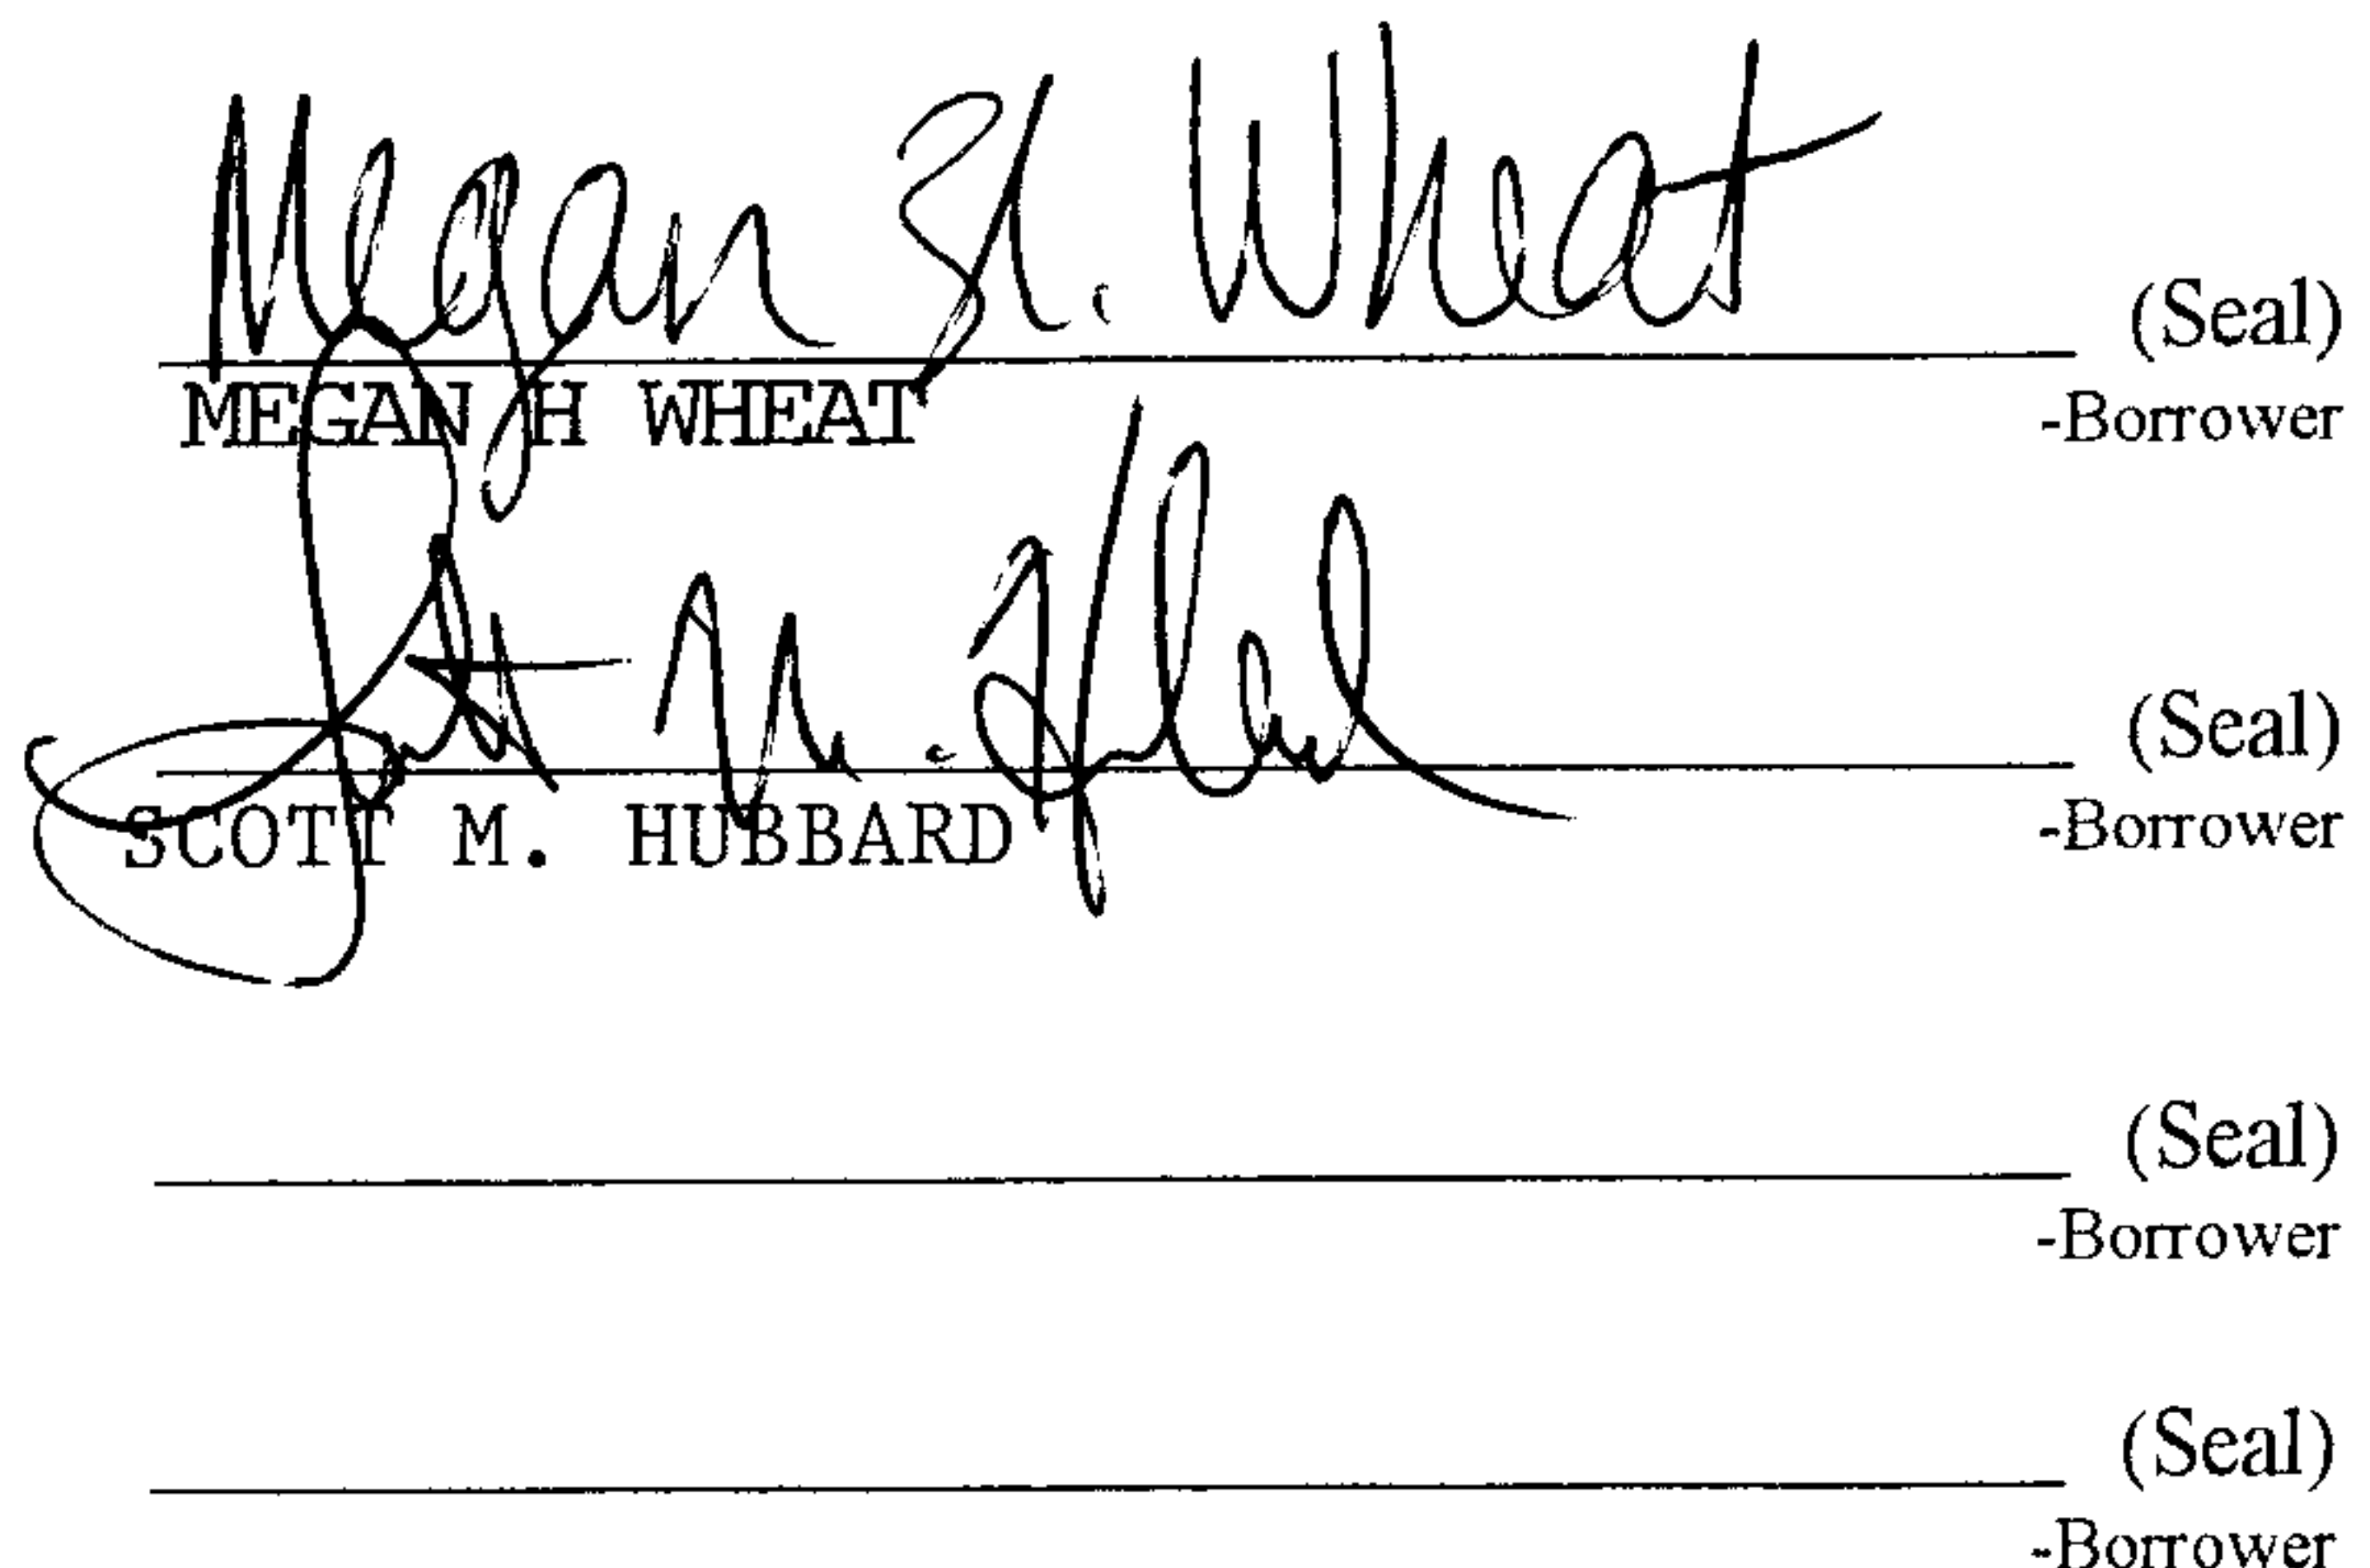 Megan H. Wheat (Seal)
MEGAN H WHEAT -Borrower
Scott M. Hubbard (Seal)
SCOTT M. HUBBARD -Borrower
(Seal)
-Borrower
(Seal)
-Borrower